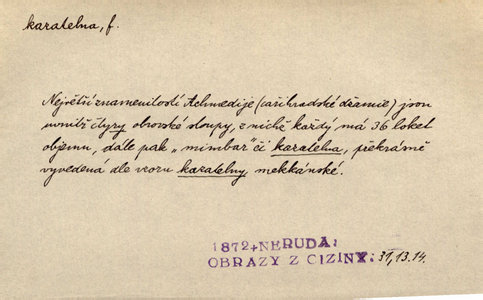 karatelna, f.
Největší znamenitostí Achmedije (cařihradské džamie) jsou
uvnitř čtyry obrovské sloupy, z nichž každý má 36 loket
objemu, dále pak „mimbar“ či kazatelna, překrásně
vyvedená dle vzoru kazatelny mekkánské.
1872+NERUDA:
OBRAZY Z CIZINY. 31,13.14.